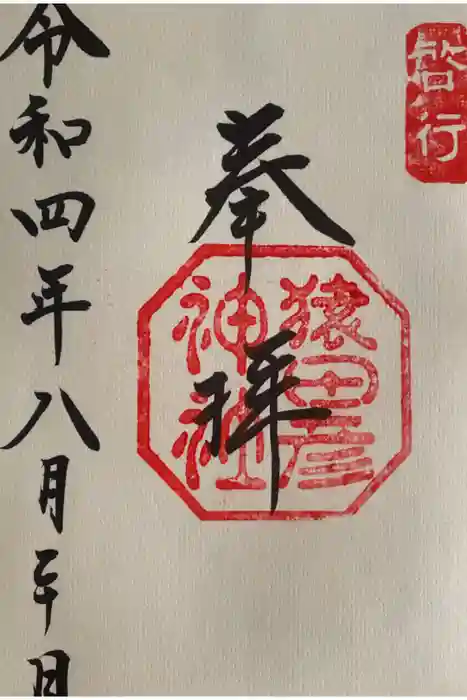 啓行
奉拝
猿田彦
神社
令和四年八月日